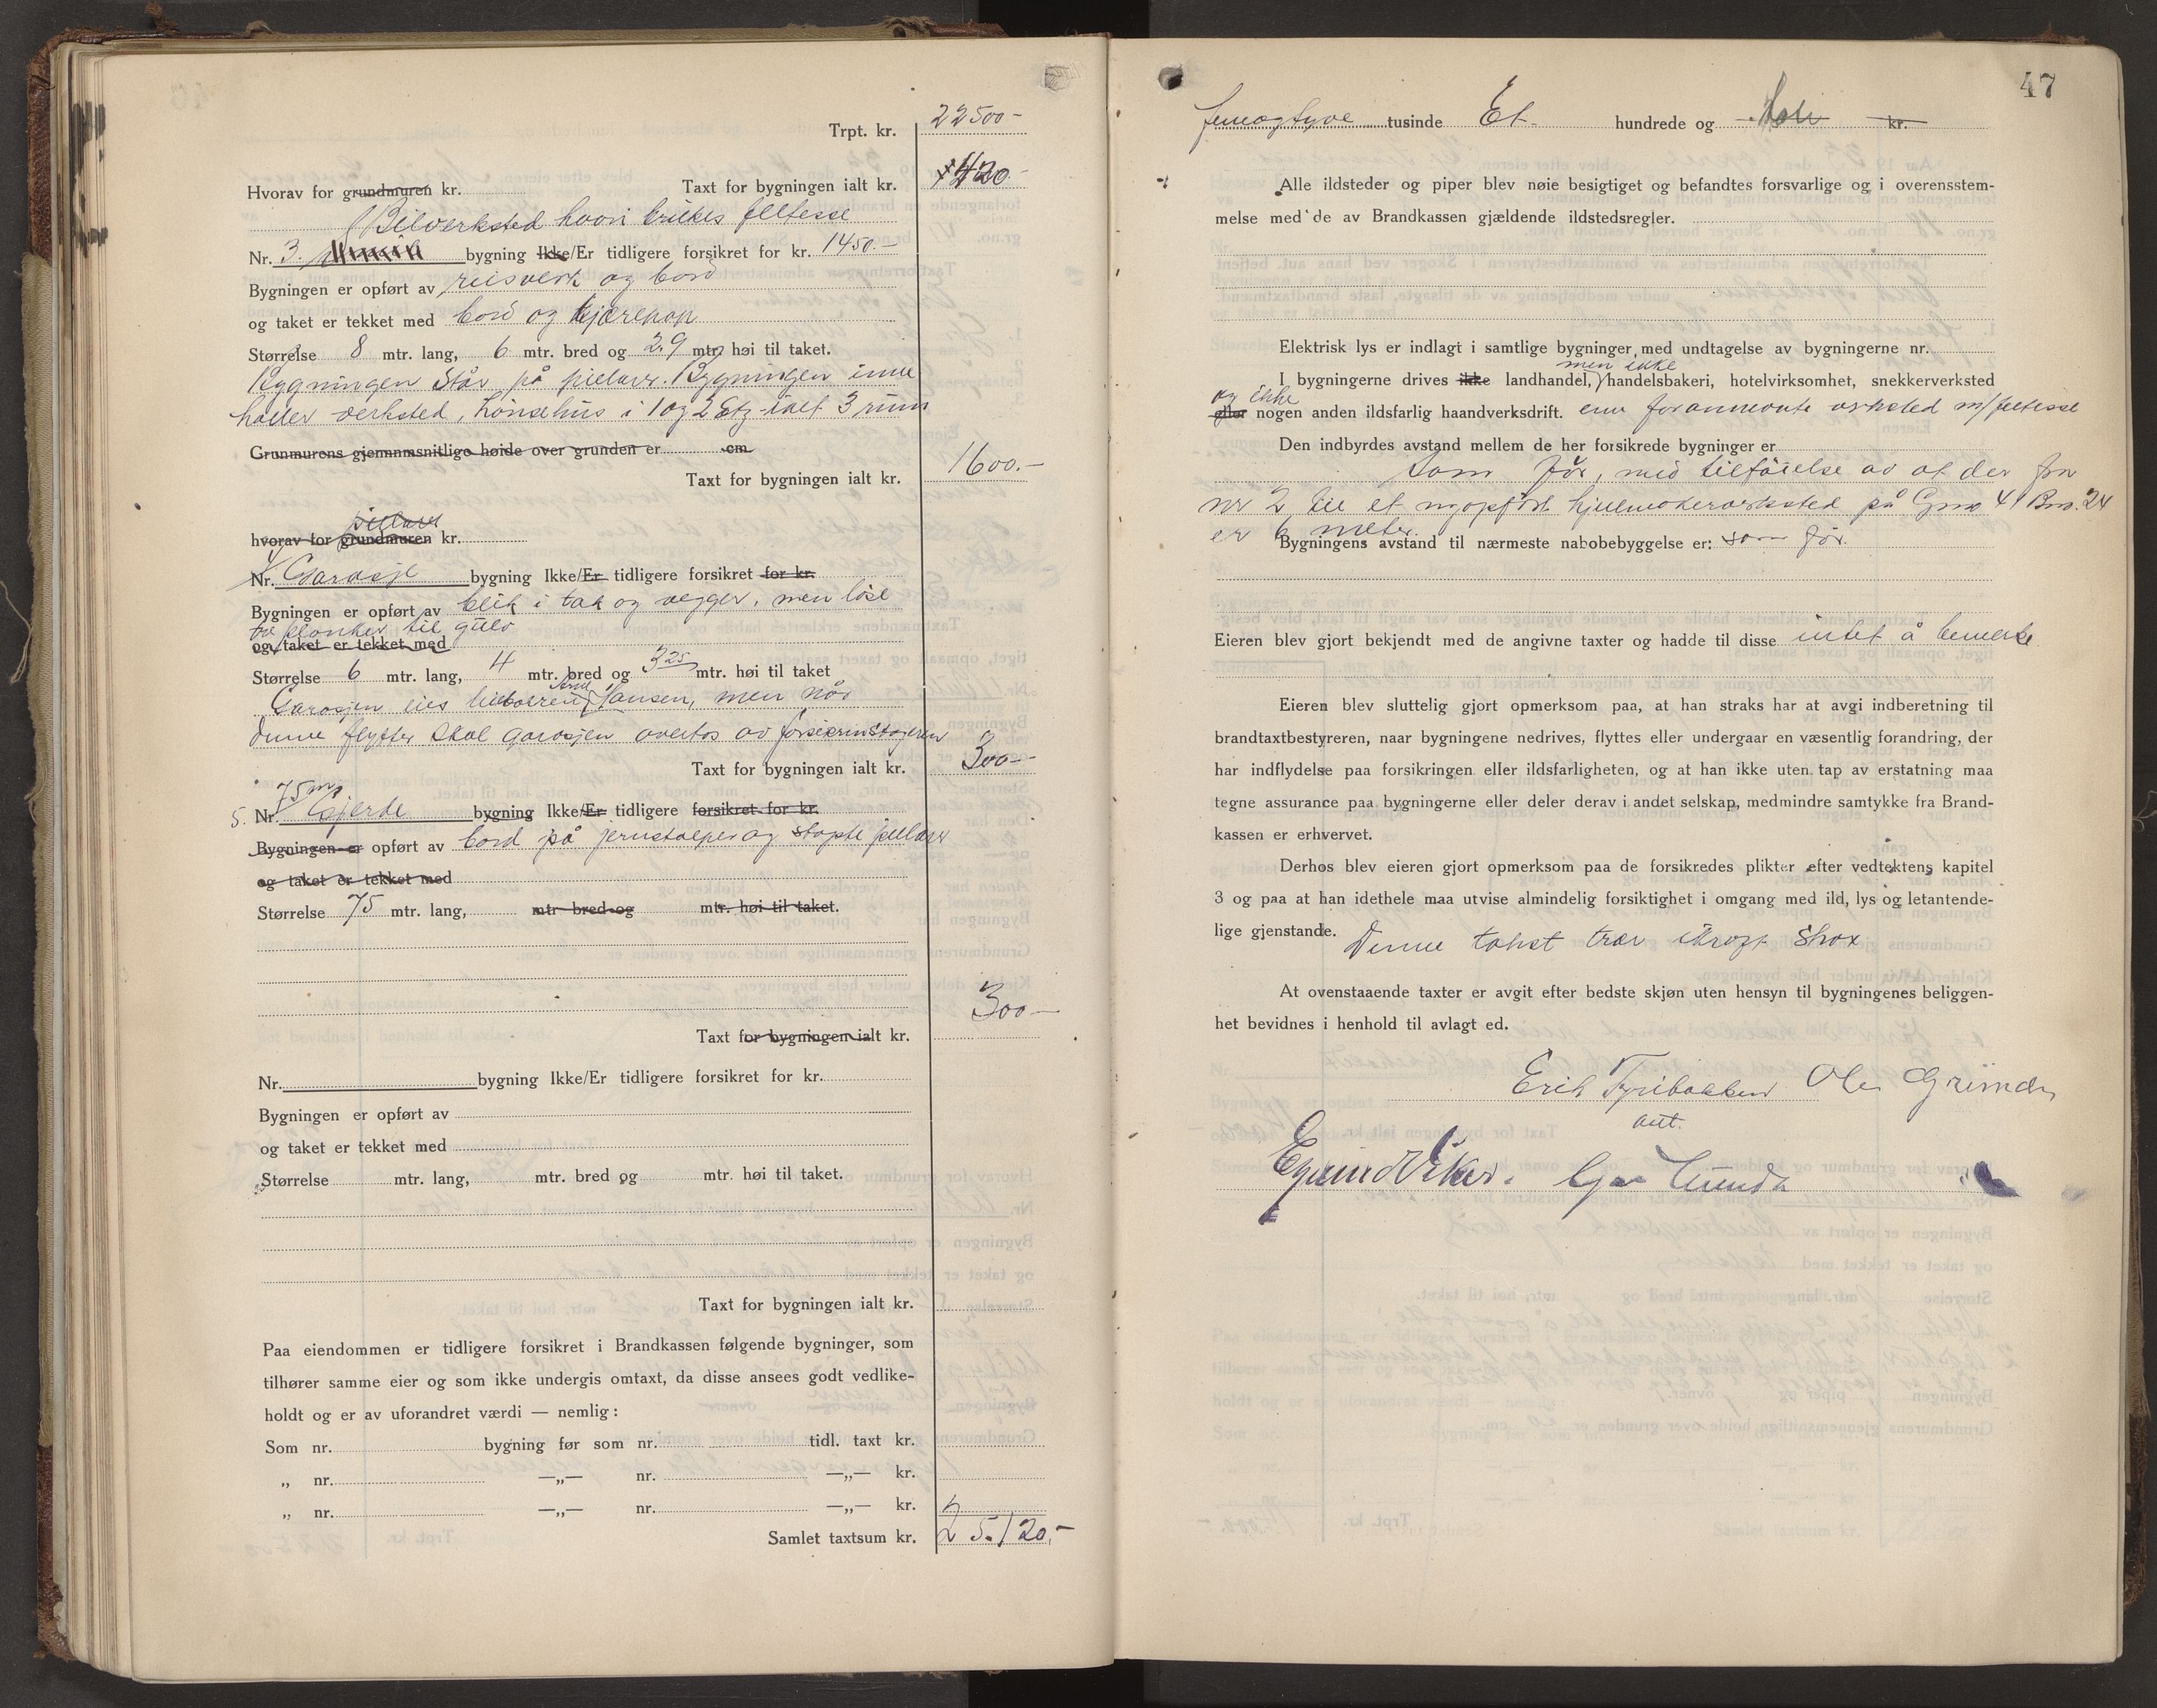 Trpt. kr. 22500-
Hvorav for grundmuren kr. Taxt for bygningen ialt kr. 420.-
Bilverksted hvori brukes feltesse
Nr. 3. bygning Ikke/Er tidligere forsikret for kr. 1450.-
Bygningen er opført av reisverk og bord
og taket er tekket med bord og tjærepap
Størrelse 8 mtr. lang, 6 mtr. bred og 2.9 mtr. høi til taket.
Bygningen står på pielarer. Bygningen inne
holder verksted, hønsehus i 1 og 2 Etg. ialt 3 rum
Grunmurens gjennmsnitlige høide over grunden er cm
Taxt for bygningen ialt kr. 1600.-
pillarer
hvorav for grundmuren kr.
4 Nr. Garasje bygning Ikke/Er tidligere forsikret for kr.
Bygningen er opført av blik i tak og vegger, men løse
tre planker til gulv
og taket er tekket med
Størrelse 6 mtr. lang, 4 mtr. bred og 3.25 mtr. høi til taket
Garasjen eies Hansen, men når
denne flytter skal garasjen overtas av forsikrinstageren
Taxt for bygningen ialt kr. 300-
75 m
5. Nr. Gjerde bygning Ikke/Er tidligere forsikret for kr.
Bygningen er opført av bord på jernstolper og støpte pillarer
og taket er tekket med
Størrelse 75 mtr. lang, mtr bred og mtr. høi til taket.
300-
Taxt for bygningen ialt kr.
Nr. bygning Ikke/Er tidligere forsikret for kr.
Bygningen er opført av
og taket er tekket med
Størrelse mtr. lang, mtr. bred og mtr. høi til taket.
Taxt for bygningen ialt kr.
Paa eiendommen er tidligere forsikret i Brandkassen følgende bygninger, som
tilhører samme eier og som ikke undergis omtaxt, da disse ansees godt vedlike-
holdt og er av uforandret værdi — nemlig:
Som nr. bygning før som nr. tidl. taxt kr.
„ nr. —„— nr. —„— kr.
„ nr. —„— nr. —„— kr.
Samlet taxtsum kr. 25.120,-
47
femogtyve tusinde Et hundrede og kr.
Alle ildsteder og piper blev nøie besigtiget og befandtes forsvarlige og i overensstem-
melse med de av Brandkassen gjældende ildstedsregler.
Elektrisk lys er indlagt i samtlige bygninger med undtagelse av bygningerne nr.
men ikke
I bygningerne drives ikke landhandel, handelsbakeri, hotelvirksomhet, snekkerverksted
og ikke
eller nogen anden ildsfarlig haandverksdrift. enn forannevnte verksted m/feltesse
Den indbyrdes avstand mellem de her forsikrede bygninger er
som før, med tilføielse av at der fra
nr 2 til et nyopført hjulmakerverksted på Gno 41 Bno. 24
er 6 meter.
Bygningens avstand til nærmeste nabobebyggelse er: som før.
Eieren blev gjort bekjendt med de angivne taxter og hadde til disse intet å bemerke
Eieren blev sluttelig gjort opmerksom paa, at han straks har at avgi indberetning til
brandtaxtbestyreren, naar bygningene nedrives, flyttes eller undergaar en væsentlig forandring, der
har indflydelse paa forsikringen eller ildsfarligheten, og at han ikke uten tap av erstatning maa
tegne assurance paa bygningerne eller deler derav i andet selskap, medmindre samtykke fra Brand-
kassen er erhvervet.
Derhos blev eieren gjort opmerksom paa de forsikredes plikter efter vedtektens kapitel
3 og paa at han idethele maa utvise almindelig forsiktighet i omgang med ild, lys og letantende-
lige gjenstande. Denne takst trær i kraft strax
At ovenstaaende taxter er avgit efter bedste skjøn uten hensyn til bygningenes beliggen-
het bevidnes i henhold til avlagt ed.
Erik Tyribakken
aut.